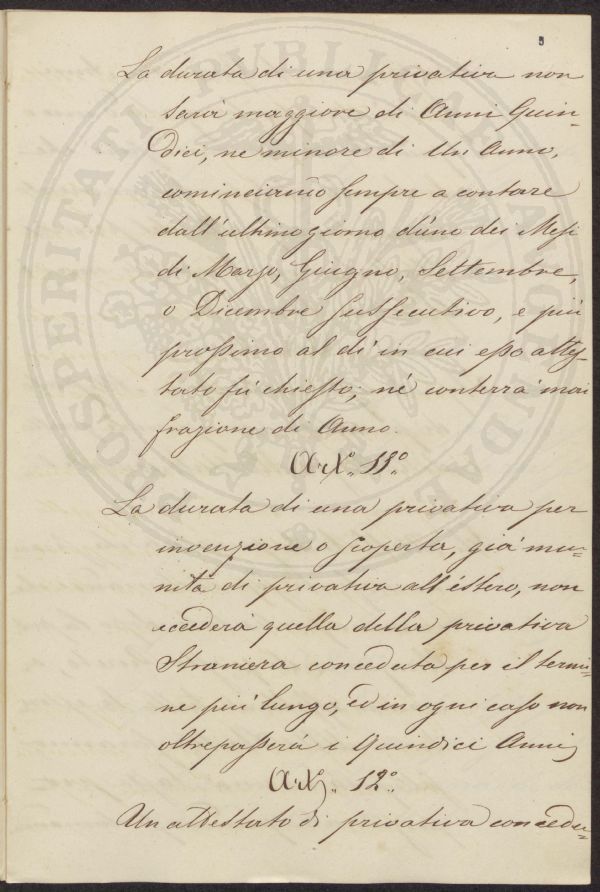 5
La durata di una privativa non
sarà maggiore di Anni Quin-
dici, ne minore di Un Anno,
cominciando sempre a contare
dall'ultimo giorno d'uno dei Mesi
di Marzo, Giugno, Settembre,
o Dicembre sussecutivo, e più
prossimo al dì in cui esso attes-
tato fù chiesto; né conterrà mai
frazione di Anno.
Art.° 11°
La durata di una privativa per
invenzione o scoperta, già mu-
nita di privativa all'éstero, non
eccederà quella della privativa
Straniera conceduta per il termi-
ne più lungo, ed in ogni caso non
oltrepasserà i Quindici Anni,
Art. 12°
Un attestato di privativa concedu-
PROSPERITATI PUBLICAE